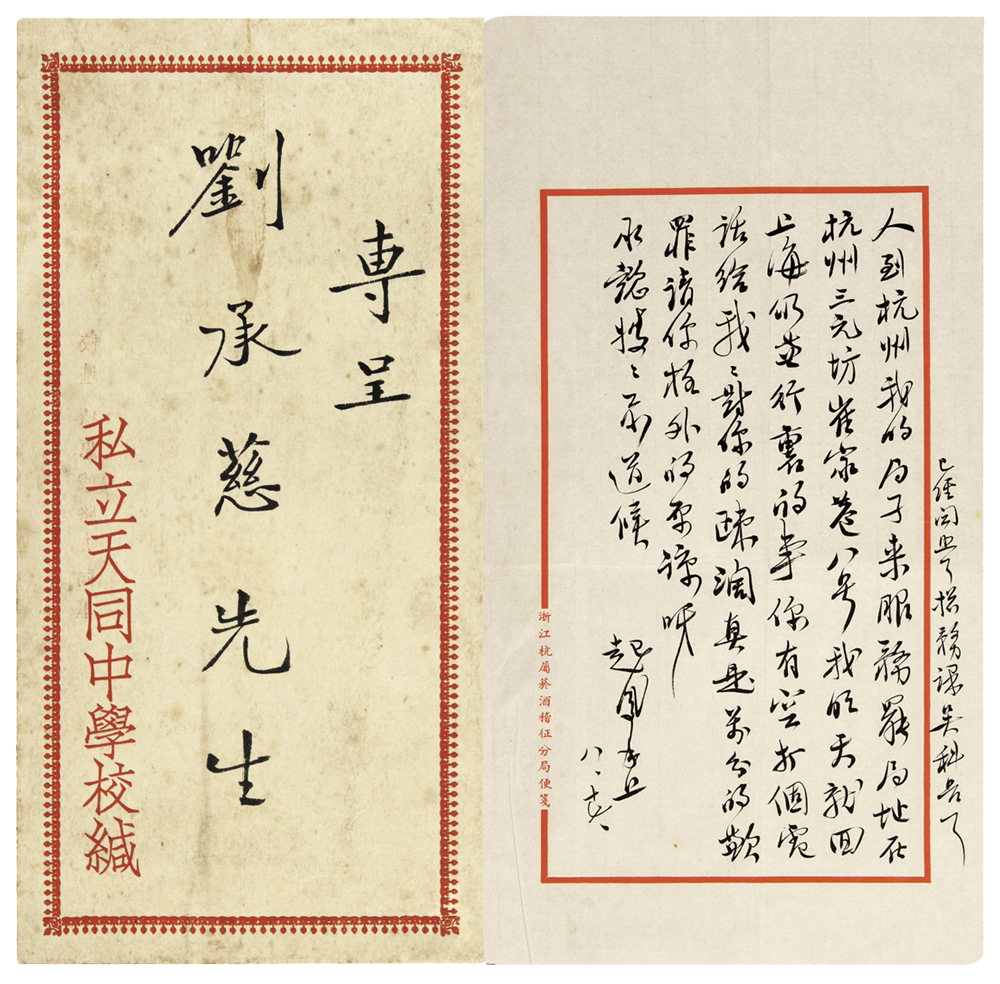 專呈
劉承慈先生
私立天同中學校緘
已經関照了捴務課吳科長了
人到杭州我的局子来服務罷局址在
杭州三元坊崔家巷八号我明天就回
上海仍行裏的事你有空打個電
話給我〻對你的疎濶真是萬分的歉
罪請你格外的原諒呀
承懿姊〻前道候
起鳳手上
浙江杭屬菸酒稽征分局便箋